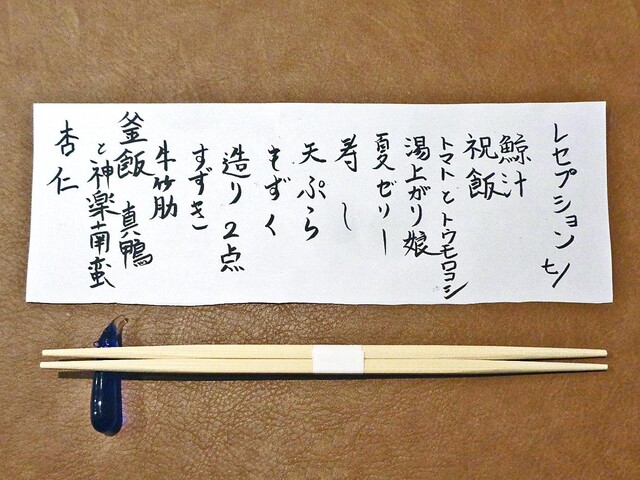 レセプション七ノ
鯨汁
祝飯
トマトとトウモロコシ
湯上がり娘
夏ゼリー
寿し
天ぷら
もずく
造り2点
すずき
牛竹肋
釜飯 真鴨
と神楽南蛮
杏仁